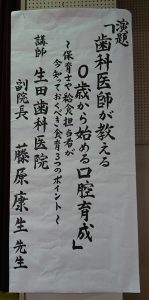 演題
「歯科医師が教える
0歳から始める口腔育成」
～保育士や給食担当者が
今知っておくべき食育3つのポイント～
講師 生田歯科医院
副院長 藤原康生先生